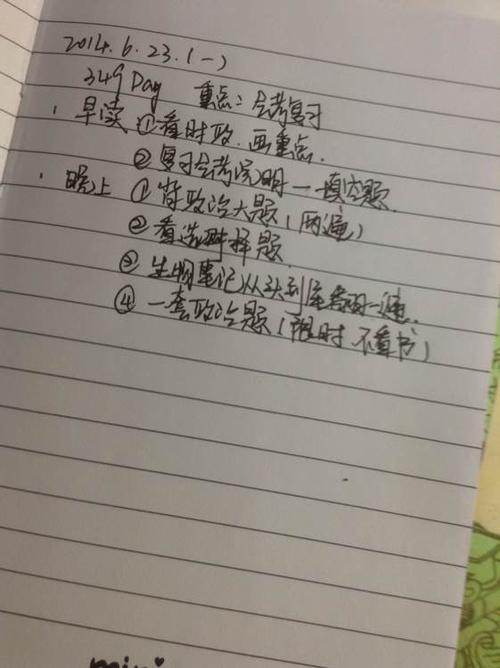 2014.6.23.(一)
349 Day 重点:会考复习
· 早读 ①看时政.画重点.
②复习会考说明一填空题.
· 晚上 ①背政治大题(两遍)
②看选择题
③生物笔记从头到尾看一遍.
④一套政治题(限时.不看书)
mini